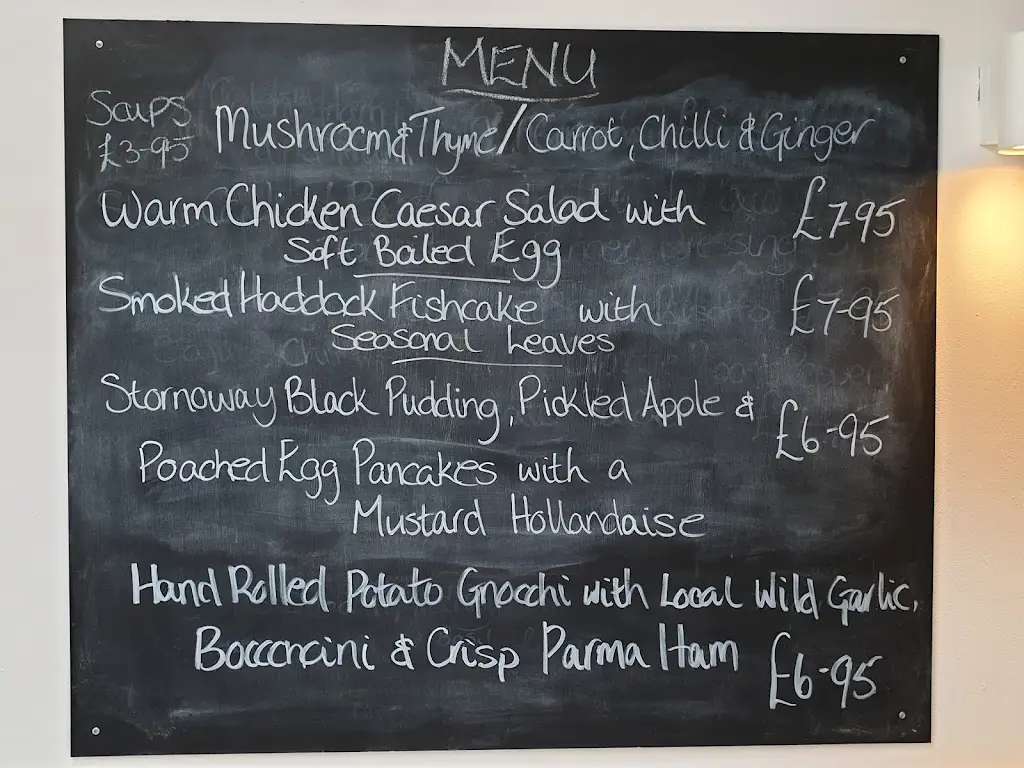 MENU
Soups
£3-95
Mushroom & Thyme / Carrot, Chilli & Ginger
Warm Chicken Caesar Salad with £7.95
Soft Boiled Egg
Smoked Haddock Fishcake with £7-95
Seasonal Leaves
Stornoway Black Pudding, Pickled Apple & £6-95
Poached Egg Pancakes with a
Mustard Hollandaise
Hand Rolled Potato Gnocchi with Local Wild Garlic,
Bocccncini & Crisp Parma Ham £6-95